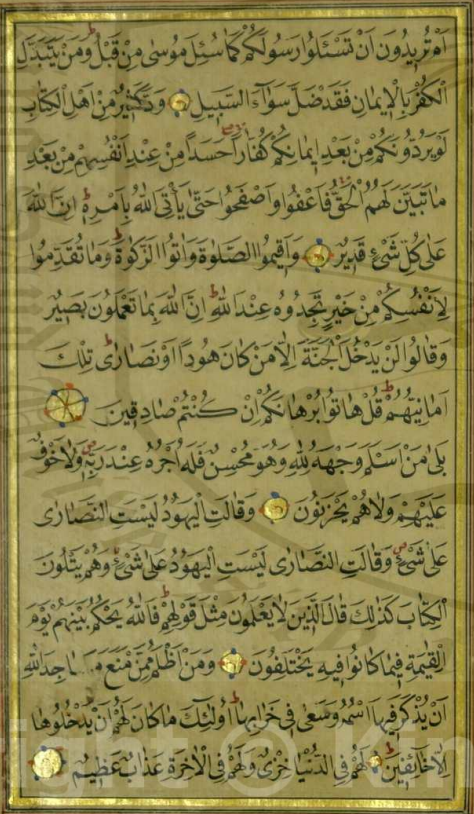 اَمْ تُرِيدُونَ اَنْ تَسْئَلُوا رَسُولَكُمْ كَمَا سُئِلَ مُوسٰى مِنْ قَبْلُ وَمَنْ يَتَبَدَّلِ
الْكُفْرَ بِالْاِيمَانِ فَقَدْ ضَلَّ سَوَآءَ السَّبِيلِ وَدَّ كَثِيرٌ مِنْ اَهْلِ الْكِتَابِ
لَوْ يَرُدُّونَكُمْ مِنْ بَعْدِ اِيمَانِكُمْ كُفَّارًا حَسَدًا مِنْ عِنْدِ اَنْفُسِهِمْ مِنْ بَعْدِ
مَا تَبَيَّنَ لَهُمُ الْحَقُّ فَاعْفُوا وَاصْفَحُوا حَتّٰى يَأْتِىَ اللّٰهُ بِاَمْرِهِ اِنَّ اللّٰهَ
عَلٰى كُلِّ شَىْءٍ قَدِيرٌ وَاَقِيمُوا الصَّلٰوةَ وَاٰتُوا الزَّكٰوةَ وَمَا تُقَدِّمُوا
لِاَنْفُسِكُمْ مِنْ خَيْرٍ تَجِدُوهُ عِنْدَ اللّٰهِ اِنَّ اللّٰهَ بِمَا تَعْمَلُونَ بَصِيرٌ
وَقَالُوا لَنْ يَدْخُلَ الْجَنَّةَ اِلَّا مَنْ كَانَ هُودًا اَوْ نَصَارٰى تِلْكَ
اَمَانِيُّهُمْ قُلْ هَاتُوا بُرْهَانَكُمْ اِنْ كُنْتُمْ صَادِقِينَ
بَلٰى مَنْ اَسْلَمَ وَجْهَهُ لِلّٰهِ وَهُوَ مُحْسِنٌ فَلَهُ اَجْرُهُ عِنْدَ رَبِّهِ وَلَا خَوْفٌ
عَلَيْهِمْ وَلَا هُمْ يَحْزَنُونَ وَقَالَتِ الْيَهُودُ لَيْسَتِ النَّصَارٰى
عَلٰى شَىْءٍ وَقَالَتِ النَّصَارٰى لَيْسَتِ الْيَهُودُ عَلٰى شَىْءٍ وَهُمْ يَتْلُونَ
الْكِتَابَ كَذٰلِكَ قَالَ الَّذِينَ لَا يَعْلَمُونَ مِثْلَ قَوْلِهِمْ فَاللّٰهُ يَحْكُمُ بَيْنَهُمْ يَوْمَ
الْقِيٰمَةِ فِيمَا كَانُوا فِيهِ يَخْتَلِفُونَ وَمَنْ اَظْلَمُ مِمَّنْ مَنَعَ مَسَاجِدَ اللّٰهِ
اَنْ يُذْكَرَ فِيهَا اسْمُهُ وَسَعٰى فِى خَرَابِهَا اُولٰئِكَ مَا كَانَ لَهُمْ اَنْ يَدْخُلُوهَا
اِلَّا خَائِفِينَ لَهُمْ فِى الدُّنْيَا خِزْىٌ وَلَهُمْ فِى الْاٰخِرَةِ عَذَابٌ عَظِيمٌ